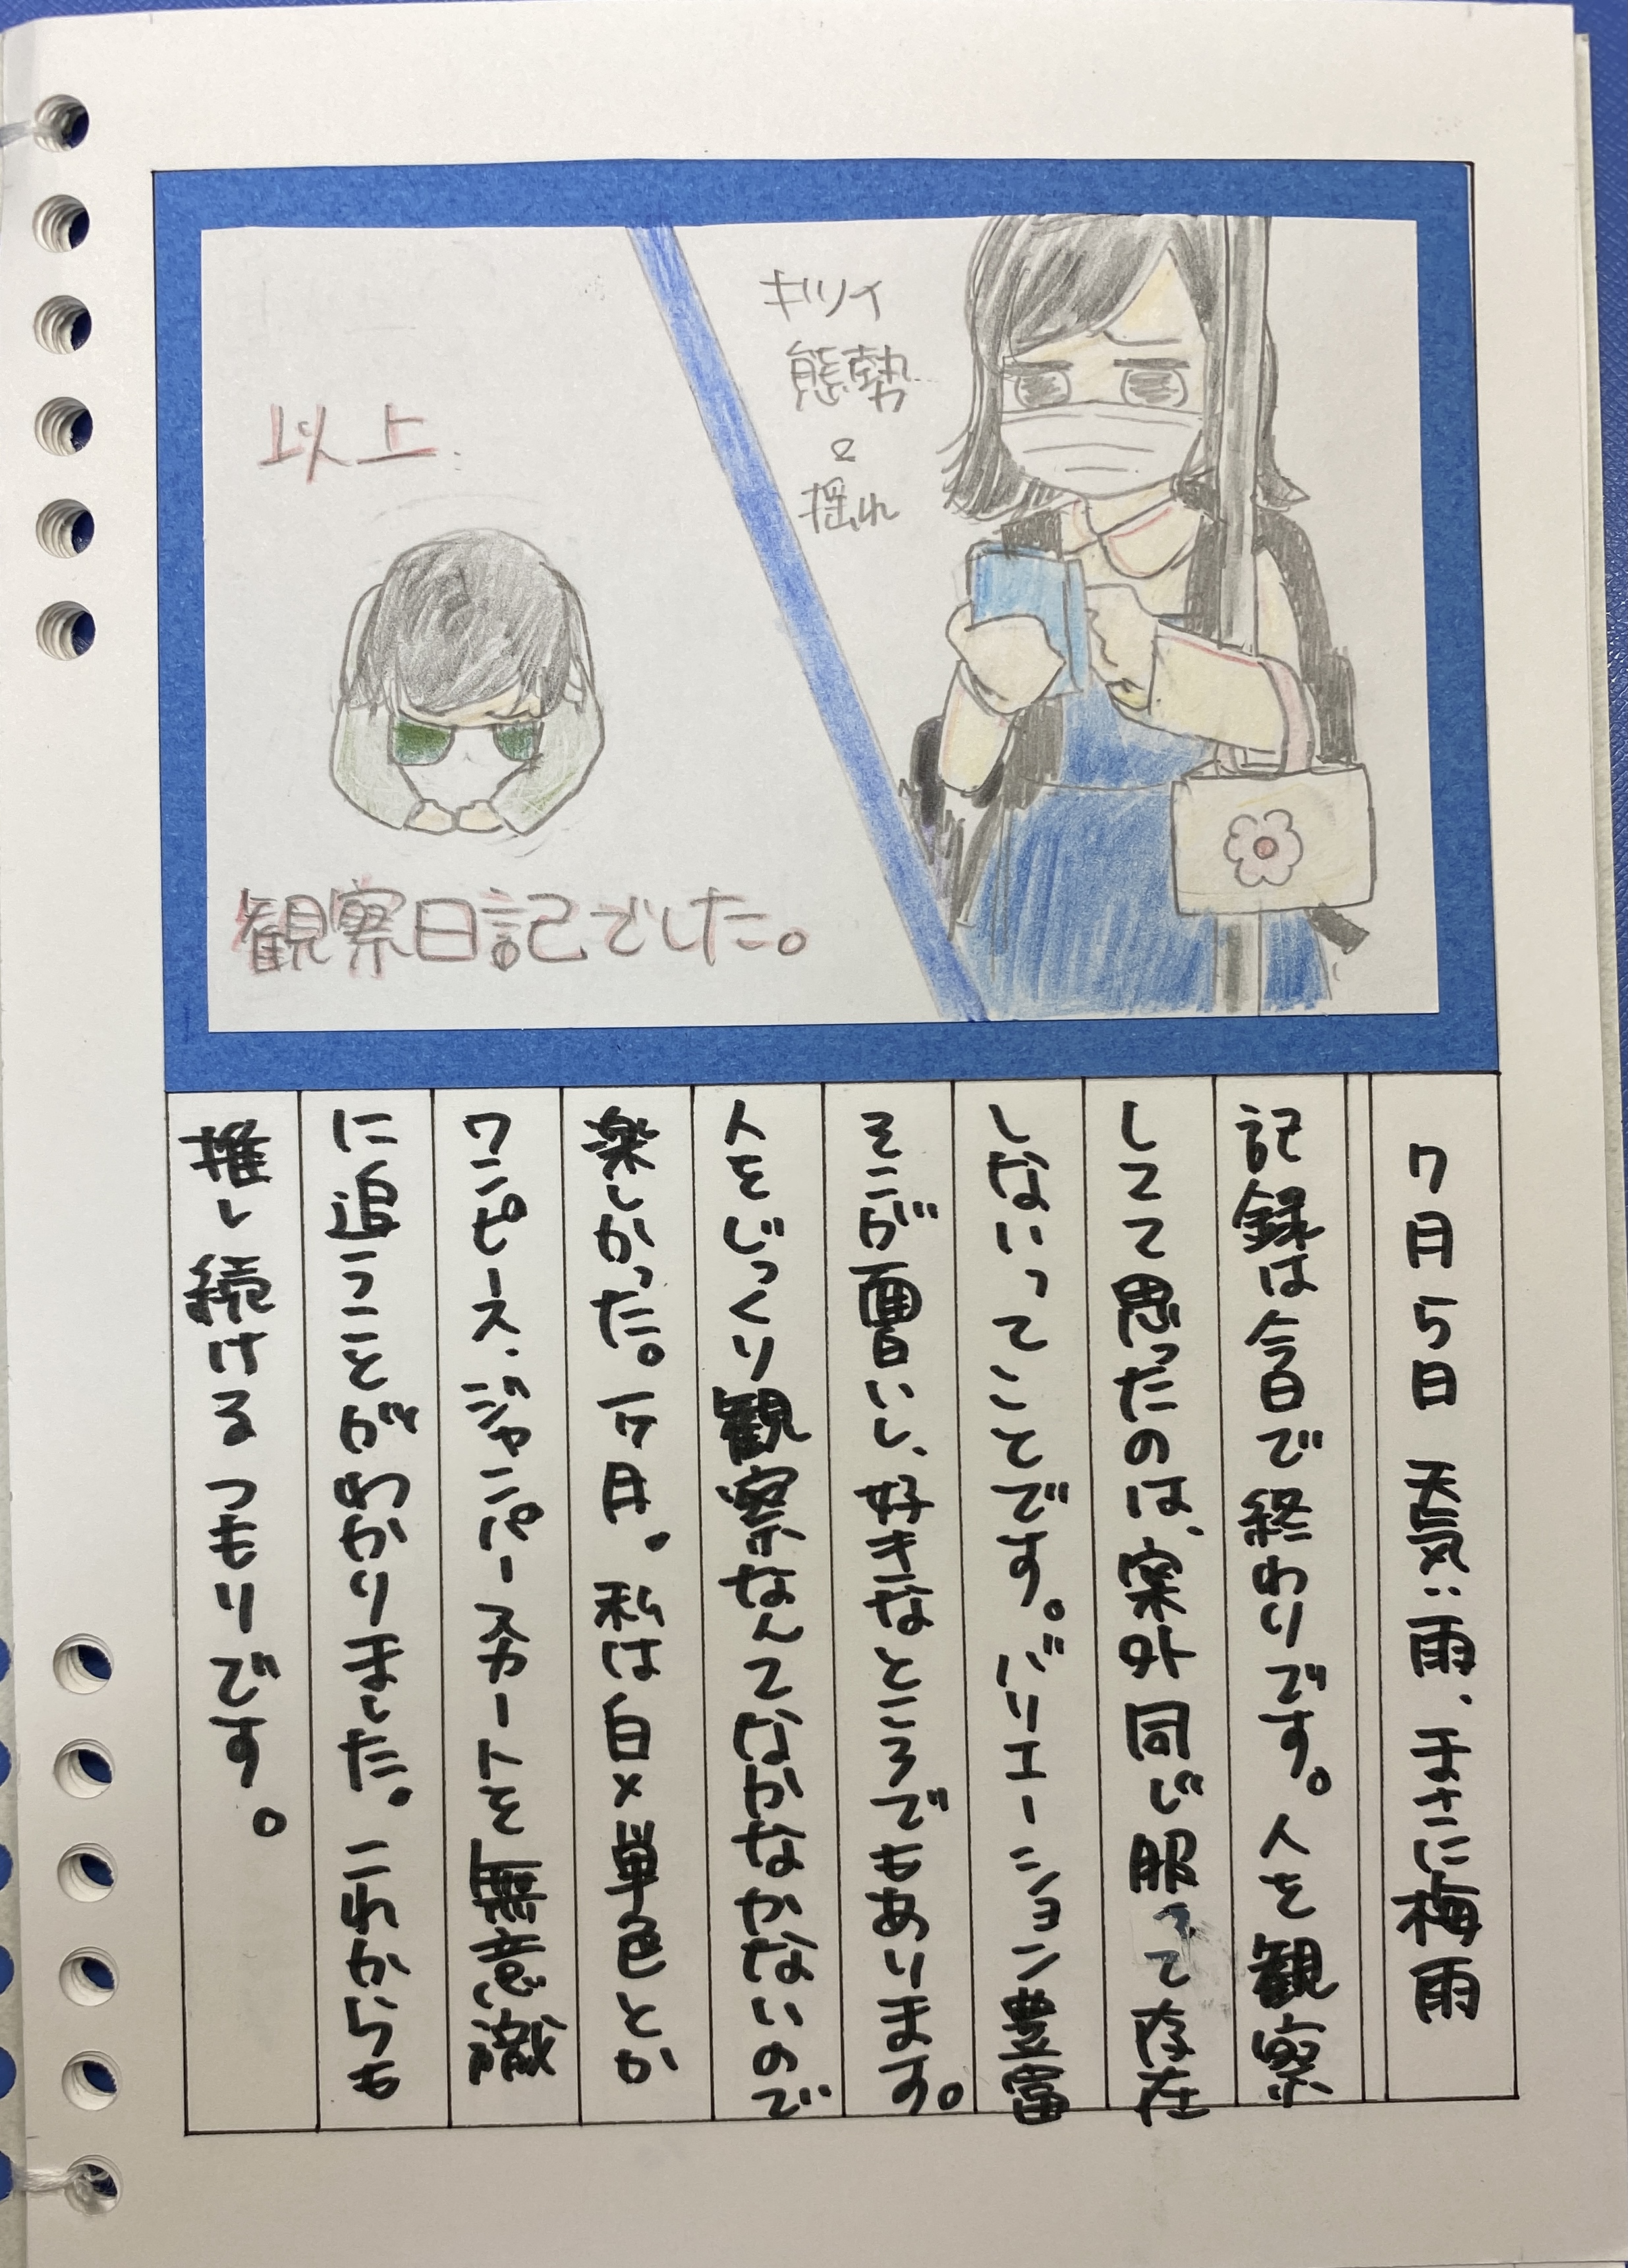 キツイ
態勢
と
揺れ
以上.
観察日記でした。
7月5日 天気:雨、まさに梅雨
記録は今日で終わりです。人を観察
してて思ったのは、案外同じ服って存在
しないってことです。バリエーション豊富
そこが面白いし、好きなところでもあります。
人をじっくり観察なんてなかなかないので
楽しかった。一ヶ月。私は白×単色とか
ワンピース・ジャンパースカートを無意識
に追うことがわかりました。これからも
推し続けるつもりです。